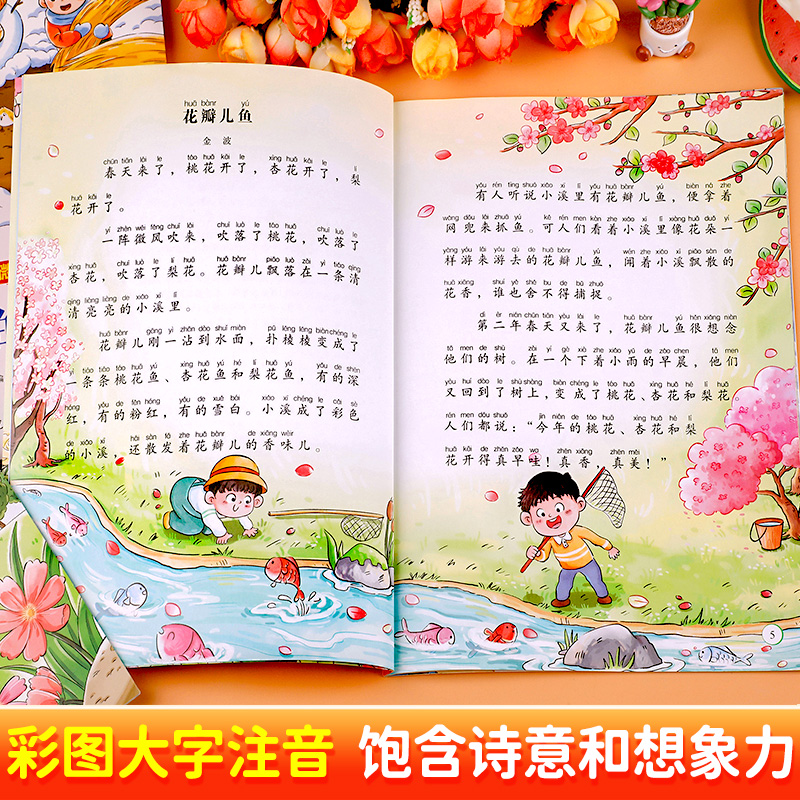 huā bànr yú
花瓣儿鱼
金波
chūn tiān lái le táo huā kāi le xìng huā kāi le lí
春天来了，桃花开了，杏花开了，梨
huā kāi le
花开了。
yí zhèn wēi fēng chuī lái chuī luò le chuī luò le
一阵微风吹来，吹落了桃花，吹落了
chuī luò le lí huā huā bànr piāo luò zài yì tiáo qīng
杏花，吹落了梨花。花瓣儿飘落在一条清
qīng liàng liàng de xiǎo xī lǐ
清亮亮的小溪里。
huā bànr gāng yì zhān dào shuǐ miàn pū lēng lēng biàn chéng le
花瓣儿刚一沾到水面，扑棱棱变成了
一条条桃花鱼、杏花鱼和梨花鱼，有的深
hóng yǒu de fěn hóng yǒu de xuě bái xiǎo xī chéng le cǎi sè
红，有的粉红，有的雪白。小溪成了彩色
de xiǎo xī hái sàn fā zhe huā bànr de xiāng wèir
的小溪，还散发着花瓣儿的香味儿。
yǒu rén tīng shuō xiǎo xī lǐ yǒu huā bànr yú biàn ná zhe
有人听说小溪里有花瓣儿鱼，便拿着
wǎng dōu lái zhuō yú kě rén men kàn zhe xiǎo xī lǐ xiàng huā duǒ yí
网兜来抓鱼。可人们看着小溪里像花朵一
yàng yóu lái yóu qù de huā bànr yú wén zhe xiǎo xī piāo sàn de
样游来游去的花瓣儿鱼，闻着小溪飘散的
huā xiāng shuí yě shě bu de bǔ zhuō
花香，谁也舍不得捕捉。
dì èr nián chūn tiān yòu lái le huā bànr yú hěn xiǎng niàn
第二年春天又来了，花瓣儿鱼很想念
tā men de shù zài yí gè xià zhe xiǎo yǔ de zǎo chen tā men
他们的树。在一个下着小雨的早晨，他们
yòu huí dào le shù shàng biàn chéng le táo huā xìng huā hé lí huā
又回到了树上，变成了桃花、杏花和梨花
rén men dōu shuō jīn nián de táo huā xìng huā hé lí
人们都说：“今年的桃花、杏花和梨
huā kāi de zhēn zǎo wa zhēn xiāng zhēn měi
花开得真早哇！真香，真美！”
5
彩图大字注音 饱含诗意和想象力